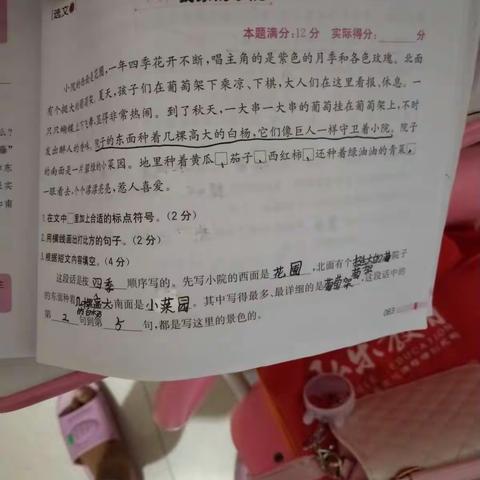 选文
本题满分:12分 实际得分:____分
小院的西面是花圃,一年四季花开不断,唱主角的是紫色的月季和各色玫瑰。北面
有个挺大的葡萄架。夏天,孩子们在葡萄架下乘凉、下棋,大人们在这里看报、休息。一
只只蝴蝶上下飞舞,显得非常热闹。到了秋天,一大串一大串的葡萄挂在葡萄架上,不时
发出醉人的香味。院子的东面种着几棵高大的白杨,它们像巨人一样守卫着小院。院子
的南面是一片碧绿的小菜园。地里种着黄瓜、茄子、西红柿,还种着绿油油的青菜,
一眼看去,个个漂漂亮亮,惹人喜爱。
1.在文中□里加上合适的标点符号。(2分)
2.用横线画出打比方的句子。(2分)
3.根据短文内容填空。(4分)
这段话是按 四季 顺序写的。先写小院的西面是 花圃 ,北面有个 挺大的葡萄架 院子
的东面种着 几棵高大的白杨 南面是 小菜园 。其中写得最多、最详细的是 葡萄架 ,这段话中的
第 2 句到第 5 句,都是写这里的景色的。
063
EDUCATION